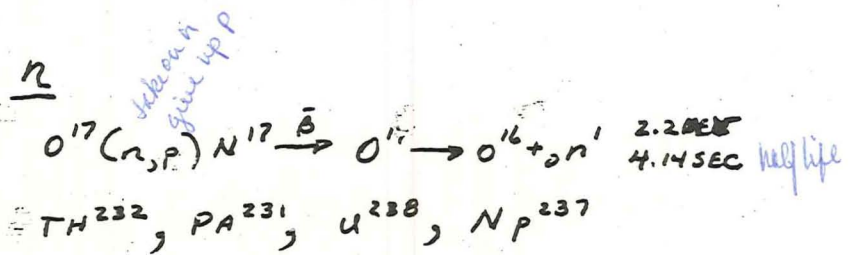 n
take on n
give up P
O¹⁷(n,p) N¹⁷ β̄→ O¹⁷ → O¹⁶ + ₀n¹ 2.2
4.14 SEC half life
TH²³², PA²³¹, U²³⁸, Np²³⁷